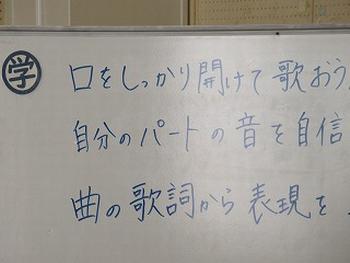 学 口をしっかり開けて歌おう
自分のパートの音を自信
曲の歌詞から表現を